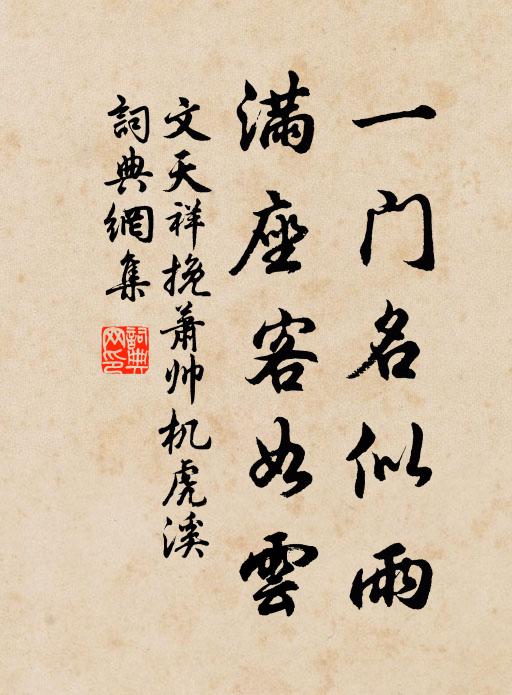 一门名似雨
满座客如雲
文天祥挽萧帅机虎溪
詞典網集
詞典網印